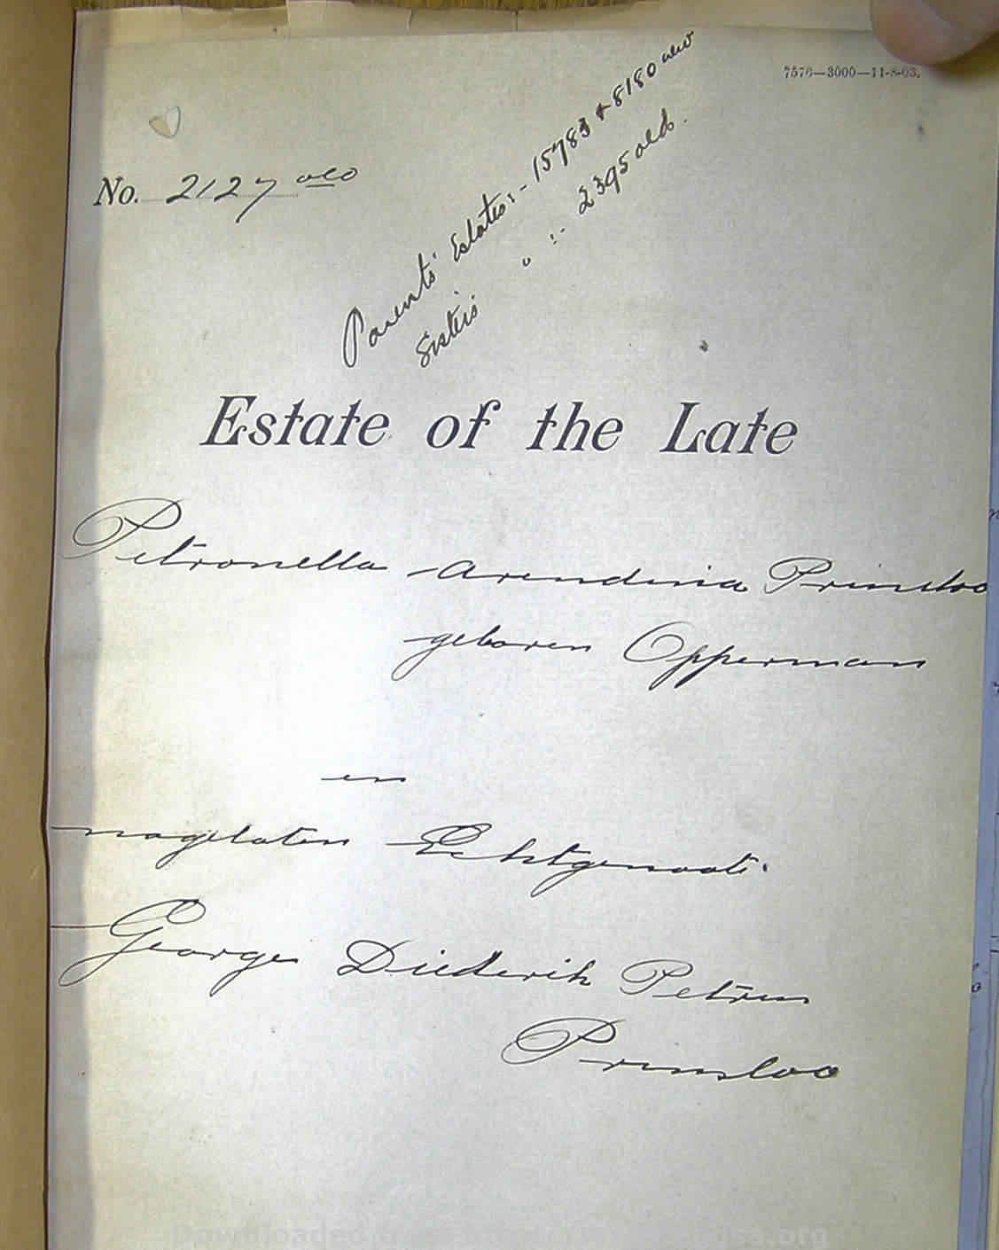 7576—3000—11-8-03.
No. 2127 old
Parents' Estates:- 15783 & 8180 new
Sisters' " :- 2395 old.
Estate of the Late
Petronella Arendina Prinsloo
geboren Opperman
en
nagelaten Echtgenoot.
George Diederik Petrus
Prinsloo
Downloaded from